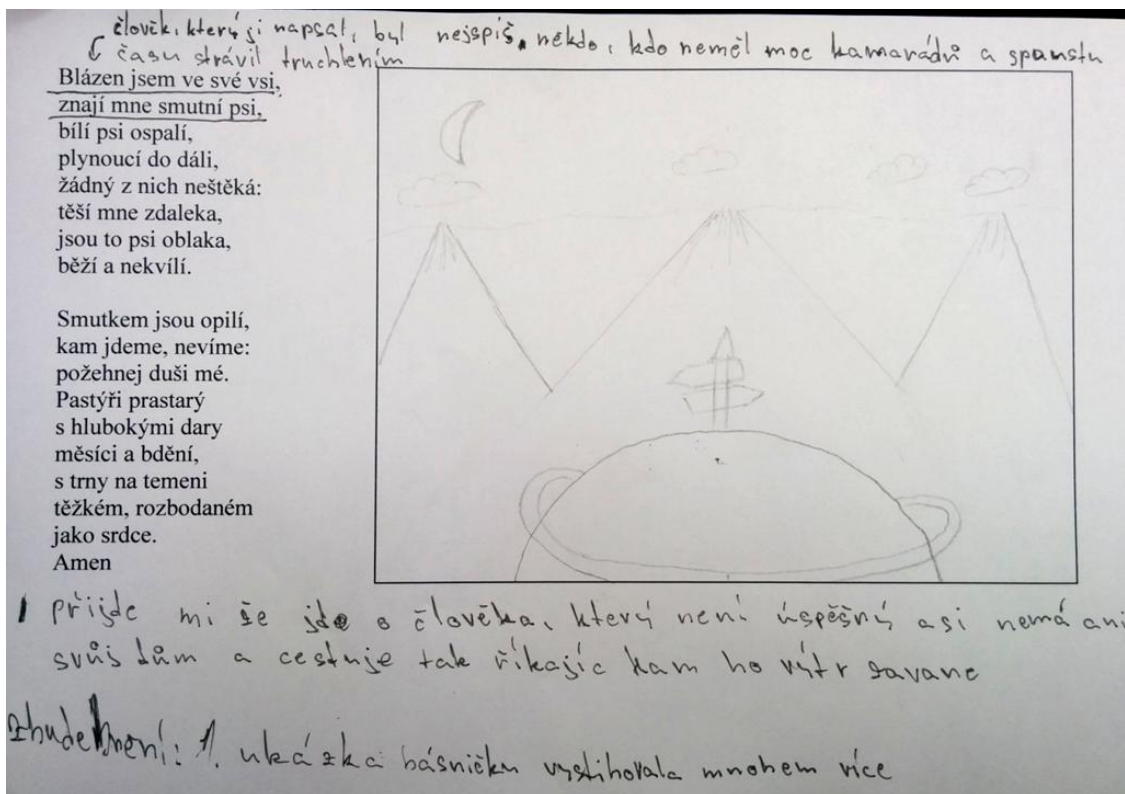 člověk, který ji napsal, byl nejspíš někdo, kdo neměl moc kamarádů a spoustu
času strávil truchlením
Blázen jsem ve své vsi,
znají mne smutní psi,
bílí psi ospalí,
plynoucí do dáli,
žádný z nich neštěká:
těší mne zdaleka,
jsou to psi oblaka,
běží a nekvílí.
Smutkem jsou opilí,
kam jdeme, nevíme:
požehnej duši mé.
Pastýři prastarý
s hlubokými dary
měsíci a bdění,
s trny na temeni
těžkém, rozbodaném
jako srdce.
Amen
přijde mi že jde o člověka, který není úspěšný asi nemá ani
svůj dům a cestuje tak říkajíc kam ho vítr zavane
zhudebnění: 1. ukázka básničku vystihovala mnohem více